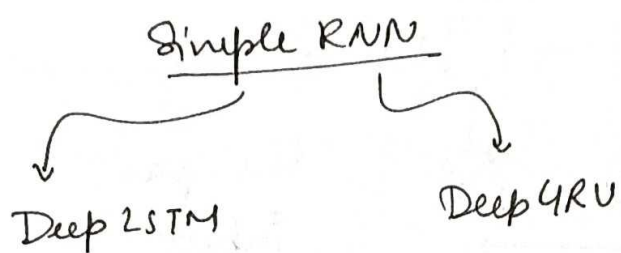 Simple RNN
Deep LSTM
Deep GRU